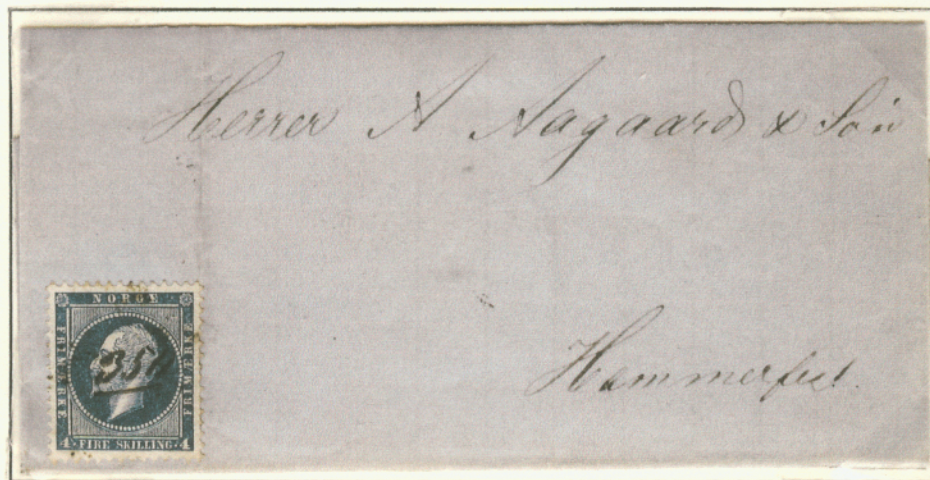 Herrer A Aagaard & Søn
Hammerfest.
NORGE
FRIMÆRKE
FRIMÆRKE
4 FIRE SKILLING 4